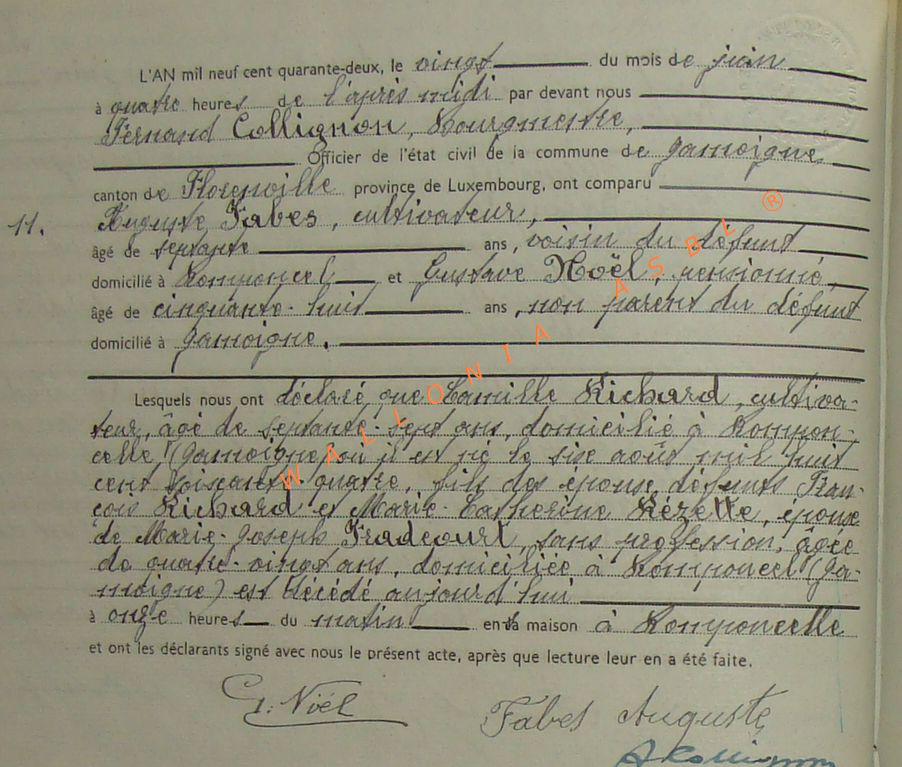 L'AN mil neuf cent quarante-deux, le vingt du mois de juin
à quatre heures de l'après midi par devant nous
Fernand Collignon, Bourgmestre,
Officier de l'état civil de la commune de Jamoigne
canton de Florenville province de Luxembourg, ont comparu
11. Auguste Fabes, cultivateur,
âgé de septante ans, voisin du défunt
domicilié à Romponcel et Gustave Noël, pensionné,
âgé de cinquante-huit ans, non parent du défunt
domicilié à Jamoigne.
Lesquels nous ont déclaré que Camille Richard, cultiva-
teur, âgé de septante-sept ans, domicilié à Rompon-
celle (Jamoigne) où il est né le six août mil huit
cent soixante-quatre, fils des époux défunts Fran-
çois Richard et Marie-Catherine Rézette, époux
de Marie-Joseph Fradcourt, sans profession, âgée
de quatre-vingt ans, domiciliée à Romponcel (Ja-
moigne) est décédé aujourd'hui
à onze heures du matin en sa maison à Romponcelle
et ont les déclarants signé avec nous le présent acte, après que lecture leur en a été faite.
G. Noël
Fabes Auguste
Collignon
WALLONIA ASBL ®